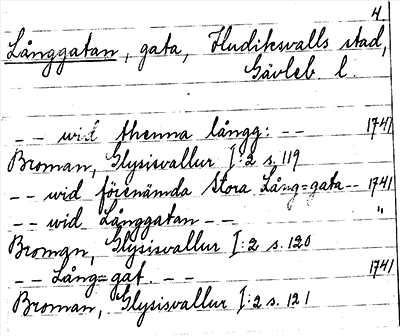 4
Långgatan, gata, Hudiksvalls stad,
Gävleb l.
-- wid thenna långg: -- 1741
Broman, Glysisvallur I:2 s. 119
-- wid förenämda Stora Lång=gata -- 1741
-- wid Långgatan -- "
Broman, Glysisvallur I:2 s. 120
-- Lång=gat. -- 1741
Broman, Glysisvallur I:2 s. 121